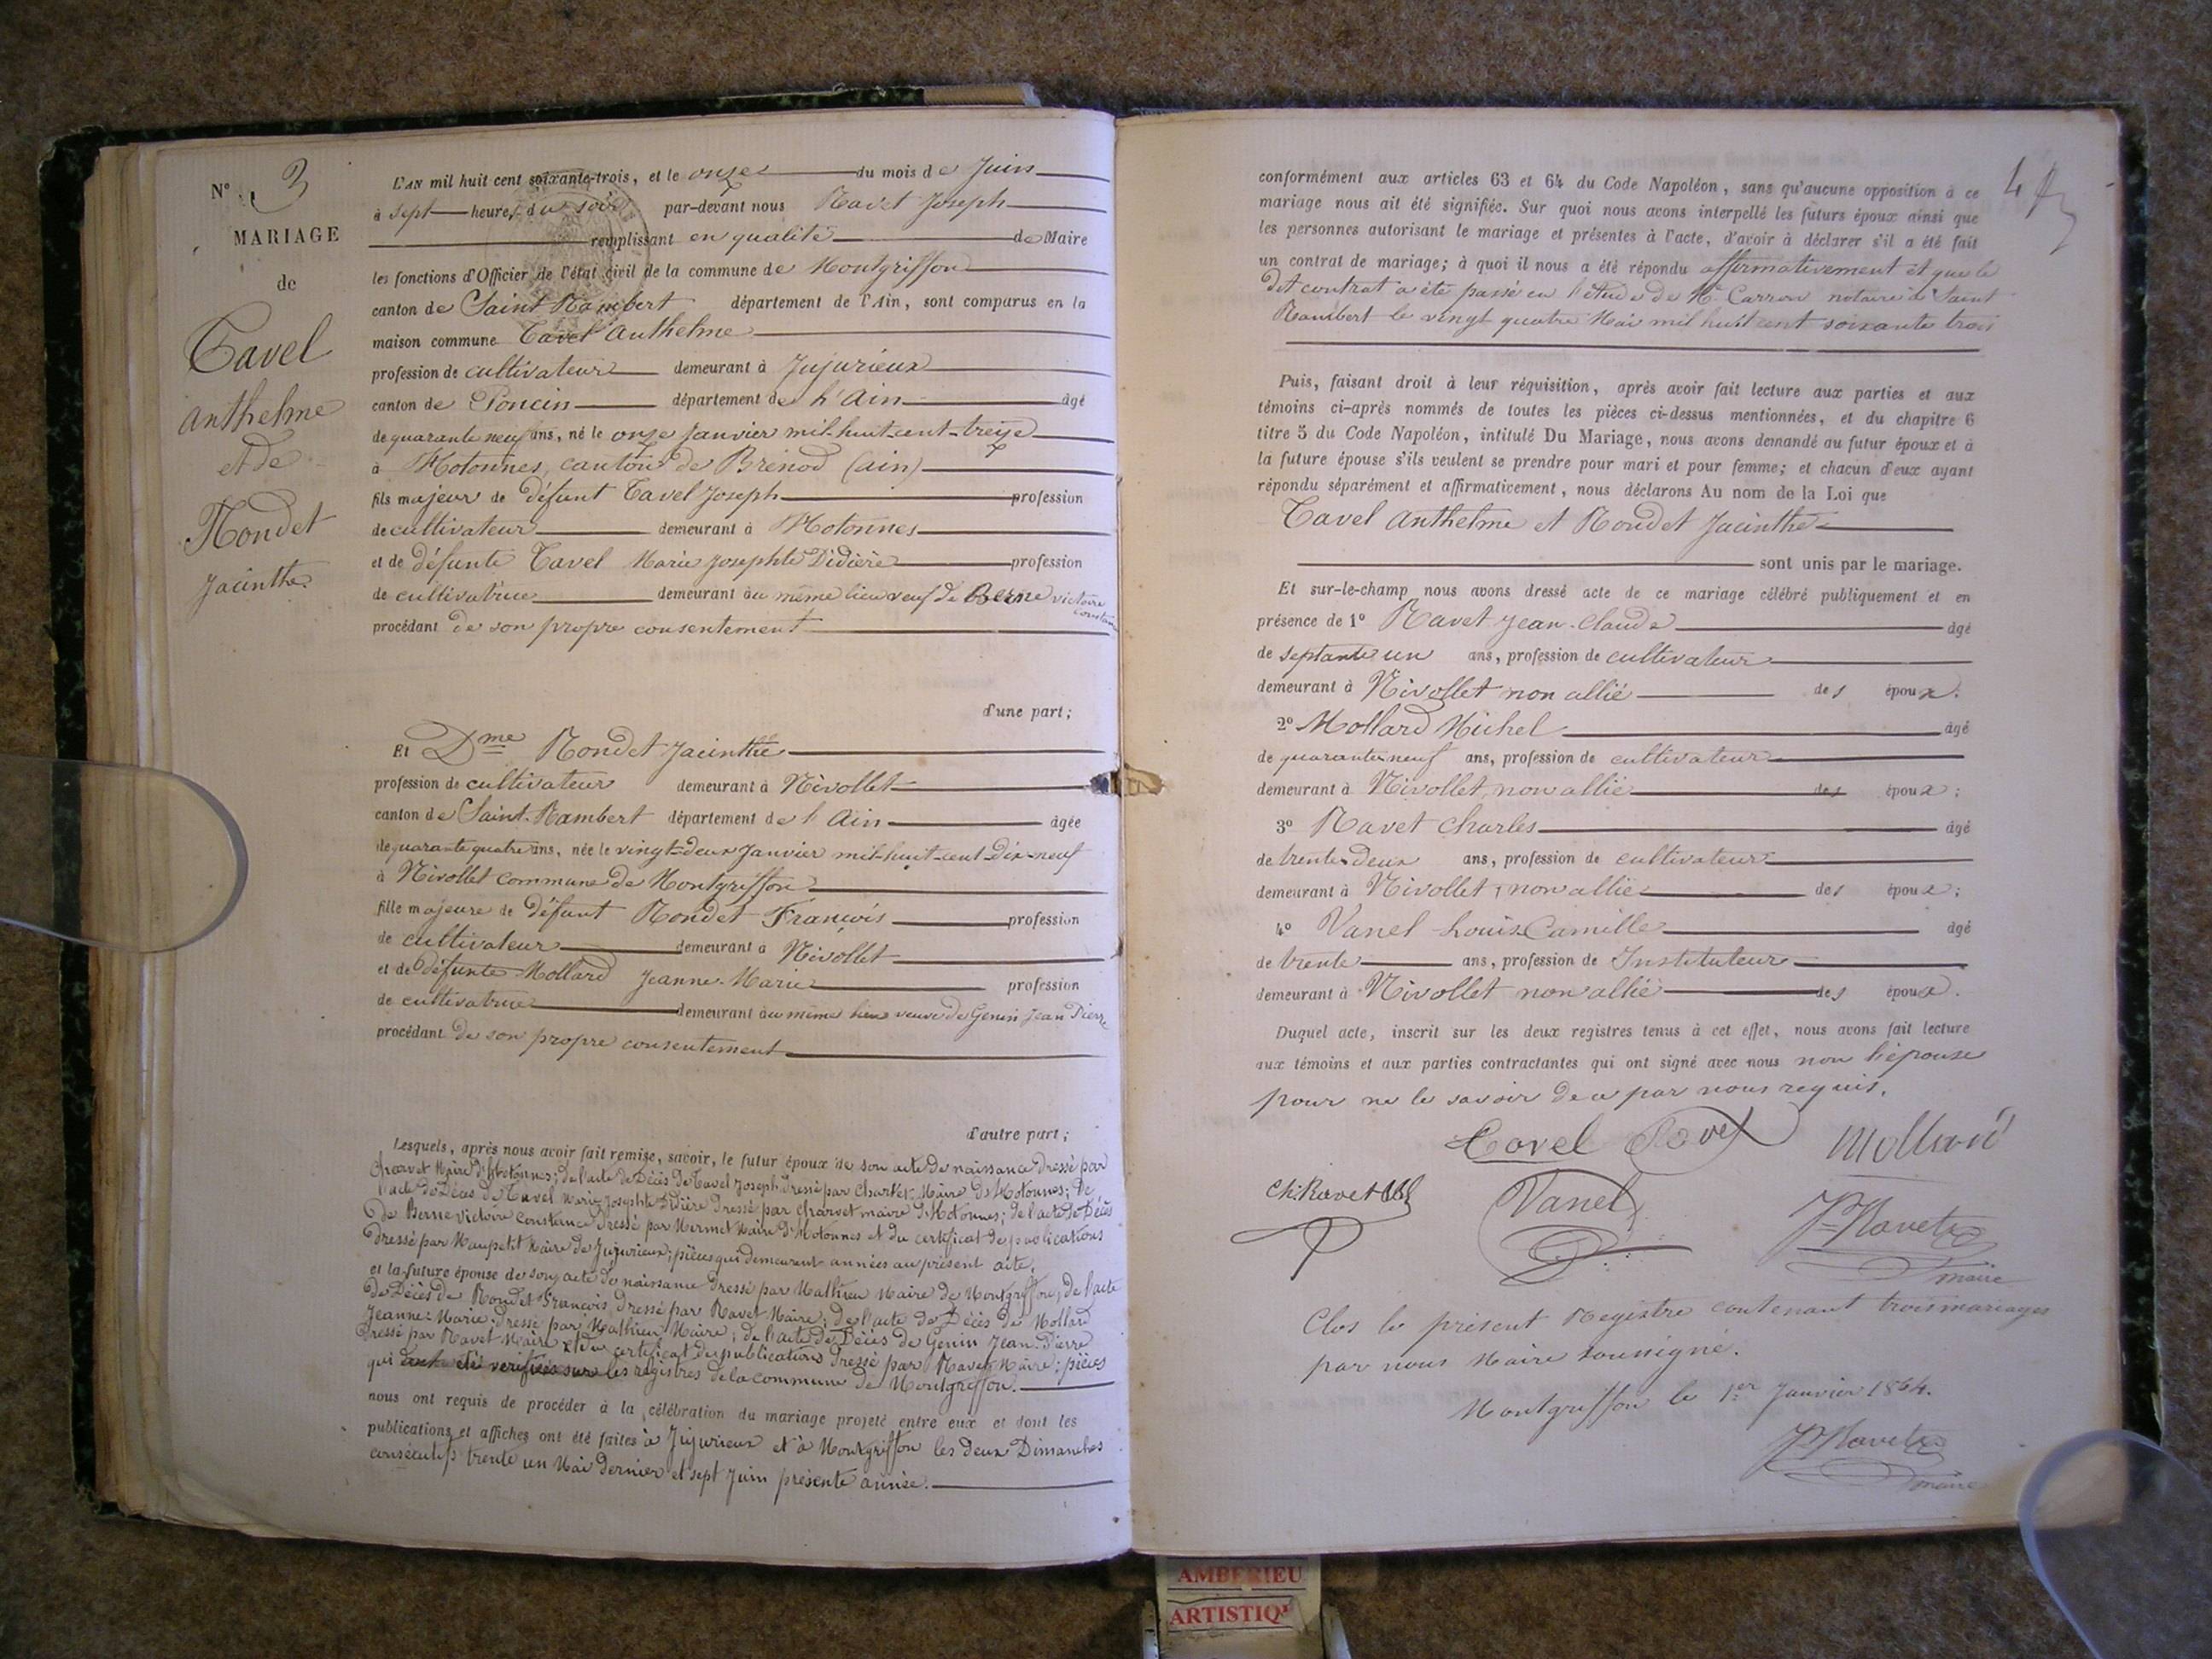 N° 3
MARIAGE
de
Tavel
Anthelme
et de
Rondet
Jacinthe
L'AN mil huit cent soixante-trois, et le onze du mois de Juin
à sept heures du soir par-devant nous Ravet Joseph
remplissant en qualité de Maire
les fonctions d'Officier de l'état civil de la commune de Montgriffon
canton de Saint Rambert département de l'Ain, sont comparus en la
maison commune Tavel Anthelme
profession de cultivateur demeurant à Jujurieux
canton de Poncin département de l'Ain âgé
de quarante neuf ans, né le onze Janvier mil-huit-cent-treize
à Hotonnes, canton de Brénod (ain)
fils majeur de défunt Tavel Joseph profession
de cultivateur demeurant à Hotonnes
et de défunte Tavel Marie Josephte Didière profession
de cultivatrice demeurant au même lieu veuf de Berne victoire constance
procédant de son propre consentement
d'une part;
Et Dme Rondet Jacinthe
profession de cultivateur demeurant à Nivollet
canton de Saint-Rambert département de l'Ain âgée
de quarante quatre ans, née le vingt-deux Janvier mil-huit-cent-Dix-neuf
à Nivollet commune de Montgriffon
fille majeure de défunt Rondet François profession
de cultivateur demeurant à Nivollet
et de défunte Mollard Jeanne-Marie profession
de cultivatrice demeurant au même lieu veuve de Genin Jean Pierre
procédant de son propre consentement
d'autre part;
Lesquels, après nous avoir fait remise, savoir, le futur époux de son acte de naissance dressé par
Charvet Maire d'Hotonnes; de l'acte de Décès de Tavel Joseph dressé par Charvet Maire d'Hotonnes; de
l'acte de Décès de Tavel Marie Josephte Didière dressé par Charvet maire d'Hotonnes; de l'acte de Décès
de Berne Victoire Constance dressé par Mermet Maire d'Hotonnes et du certificat de publications
dressé par Maupetit Maire de Jujurieux; pièces qui demeurent années au présent acte,
et la future épouse de son acte de naissance dressé par Mathieu Maire de Montgriffon; de l'acte
de Décès de Rondet François dressé par Ravet Maire; de l'acte de Décès de Mollard
Jeanne-Marie, dressé par Mathieu Maire; de l'acte de Décès de Genin Jean-Pierre
dressé par Ravet Maire et du certificat des publications dressé par Ravet Maire: pièces
qui ont été vérifiées sur les registres de la commune de Montgriffon.
nous ont requis de procéder à la célébration du mariage projeté entre eux et dont les
publications et affiches ont été faites à Jujurieux et à Montgriffon les deux Dimanches
consécutifs trente un Mai dernier et sept Juin présente année.
conformément aux articles 63 et 64 du Code Napoléon, sans qu'aucune opposition à ce
mariage nous ait été signifiée. Sur quoi nous avons interpellé les futurs époux ainsi que
les personnes autorisant le mariage et présentes à l'acte, d'avoir à déclarer s'il a été fait
un contrat de mariage; à quoi il nous a été répondu affirmativement et que le
dit contrat a été passé en l'étude de Me Carron notaire à Saint
Rambert le vingt quatre Mai mil huit cent soixante trois
Puis, faisant droit à leur réquisition, après avoir fait lecture aux parties et aux
témoins ci-après nommés de toutes les pièces ci-dessus mentionnées, et du chapitre 6
titre 5 du Code Napoléon, intitulé Du Mariage, nous avons demandé au futur époux et à
la future épouse s'ils veulent se prendre pour mari et pour femme; et chacun d'eux ayant
répondu séparément et affirmativement, nous déclarons Au nom de la Loi que
Tavel Anthelme et Rondet Jacinthe
sont unis par le mariage.
Et sur-le-champ nous avons dressé acte de ce mariage célébré publiquement et en
présence de 1° Ravet Jean-Claude âgé
de septante un ans, profession de cultivateur
demeurant à Nivollet non allié des époux;
2° Mollard Michel âgé
de quarante neuf ans, profession de cultivateur
demeurant à Nivollet, non allié des époux;
3° Ravet Charles âgé
de trente-deux ans, profession de cultivateur
demeurant à Nivollet, non allié des époux;
4° Vanel Louis Camille âgé
de trente ans, profession de Instituteur
demeurant à Nivollet non allié des époux.
Duquel acte, inscrit sur les deux registres tenus à cet effet, nous avons fait lecture
aux témoins et aux parties contractantes qui ont signé avec nous non l'épouse
pour ne le savoir de ce par nous requis.
Tavel Ravet Mollard
Ch. Ravet Vanel J. Ravet
maire
Clos le présent Registre contenant trois mariages
par nous Maire soussigné.
Montgriffon le 1er Janvier 1864.
J. Ravet
maire
AMBERIEU
ARTISTIQ